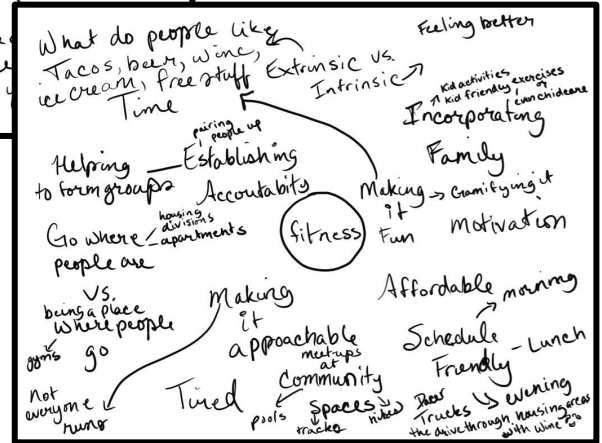 What do people like
Tacos, beer, wine,
ice cream, free stuff
Time
Extrinsic vs.
Intrinsic
Feeling better
Kid activities
kid friendly exercises
or
even childcare
Incorporating
Family
pairing
people up
Helping
to form groups
Establishing
Accoutabity
Making
it
Fun
Gamifying it
Motivation
fitness
Go where
people are
housing
divisions
apartments
vs.
being a place
where people
go
gyms
Not
everyone
runs
Making
it
appoachable
meet-ups
at
Community
Spaces
pools
tracks
Tired
Affordable
Schedule
Friendly
morning
Lunch
evening
Trucks
the drive through housing areas
with wine